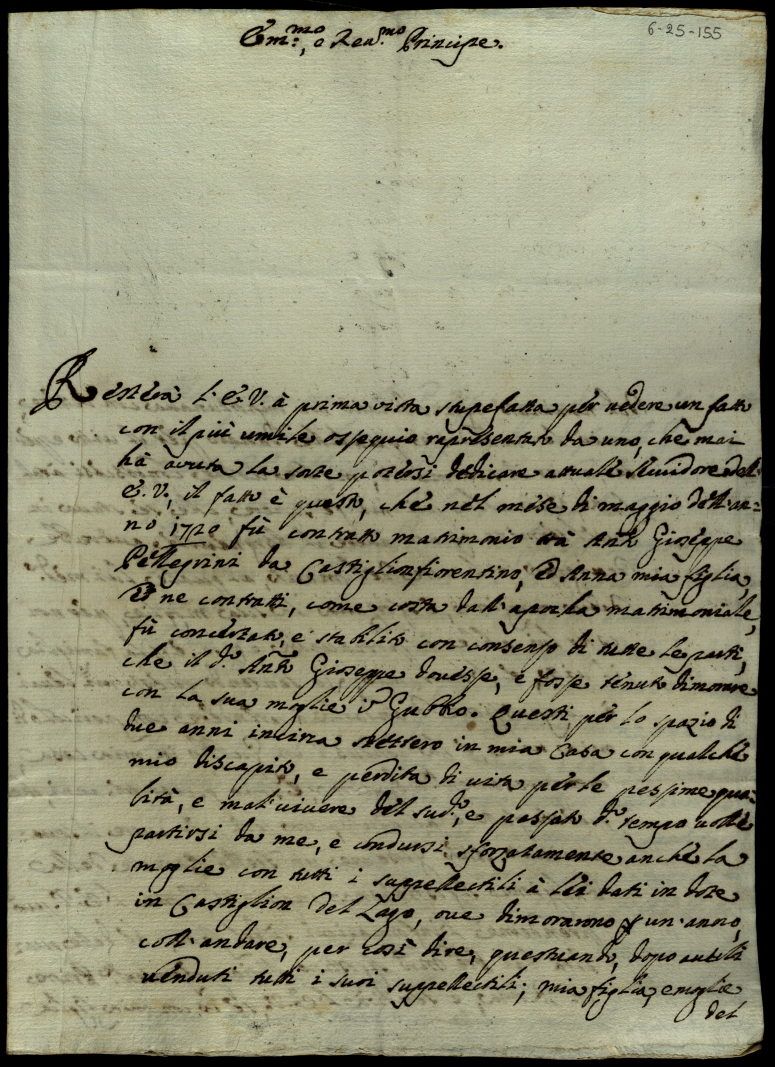 6-25-155
Em:mo, e Reu.mo Principe.
Resterà l'E.V. à prima vista stupefatta per uedere un fatto
con il più umile ossequio rapresentato da uno, che mai
hà àvuta la sorte potersi dedicare attuale Seruidore dell'
E.V.; il fatto è questo, che nel mese di maggio dell'an=
no 1720 fù contratto matrimonio trà Anto Gioseppe
Pellegrini da Castiglionfiorentino, ed Anna mia figlia,
et ne contratti, come costa dall'apoca matrimoniale,
fù concertato, e stabilito con consenso di tutte le parti,
che il do Anto Gioseppe douesse, e fosse tenuto dimorare
con la sua moglie in Gubbio. Questi per lo spazio di
due anni incirca stettero in mia Casa con qualche
mio discapito, e perdita di vita per le pessime qua=
lità, e mal'vivere del sud.o, e passato d.o tempo uolle
partirsi da me, e condursi sforzatamente anche la
moglie con tutti i suppellectili à lei dati in dote
in Castiglion del Lago, oue dimorarono un'anno,
coll'andare, per così dire, questuando, dopo auerli
uenduti tutti i suoi suppellectili; mia figlia, e moglie
del